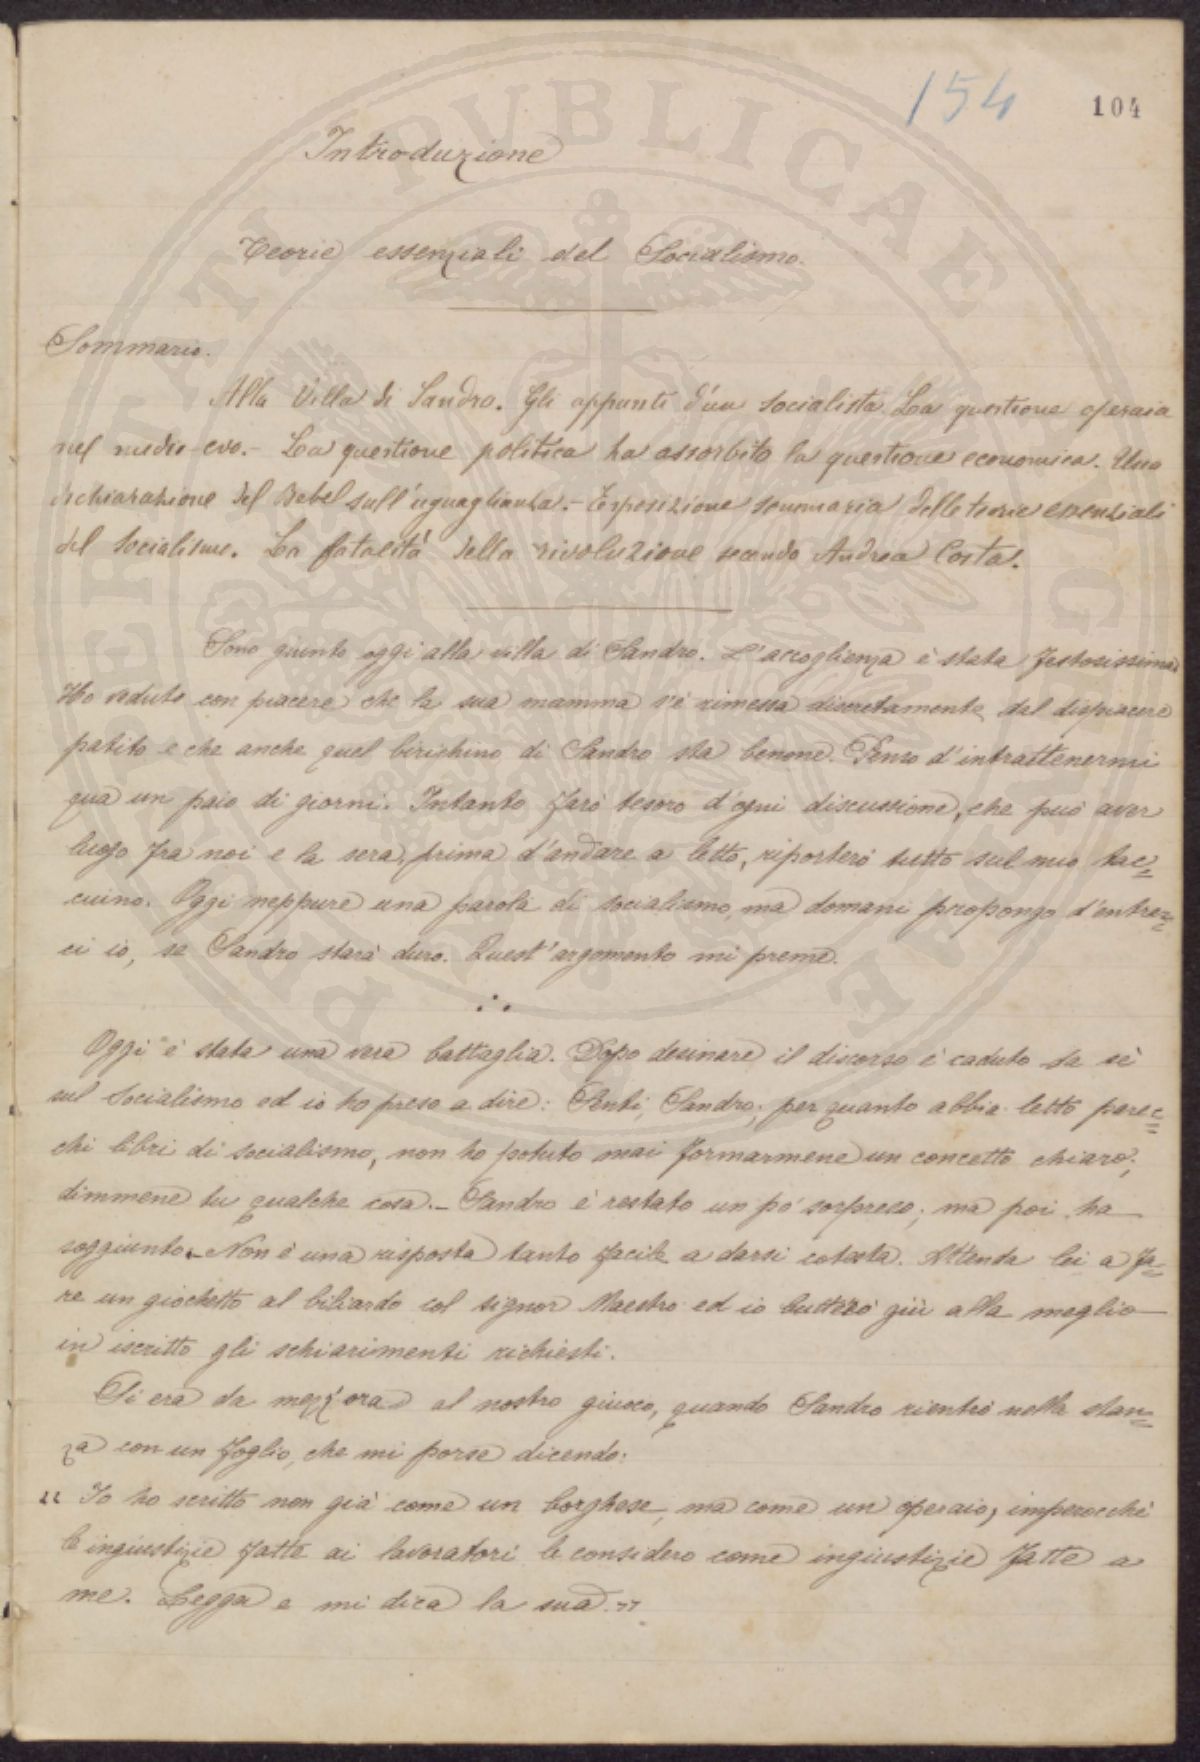 154
104
Introduzione
Teorie essenziali del Socialismo.
Sommario.
Alla Villa di Sandro. Gli appunti d'un socialista. La questione operaia
nel medio-evo. - La questione politica ha assorbito la questione economica. Una
dichiarazione del Bebel sull'uguaglianza. - Esposizione sommaria delle teorie essenziali
del Socialismo. La fatalità della rivoluzione secondo Andrea Costa.
Sono giunto oggi alla villa di Sandro. L'accoglienza è stata festosissima.
Ho veduto con piacere che la sua mamma s'è rimessa discretamente dal dispiacere
patito e che anche quel birichino di Sandro sta benone. Penso d'intrattenermi
qua un paio di giorni. Intanto farò tesoro d'ogni discussione, che può aver
luogo fra noi e la sera, prima d'andare a letto, riporterò tutto sul mio tac=
cuino. Oggi neppure una parola di socialismo, ma domani propongo d'entrar=
ci io, se Sandro starà duro. Quest'argomento mi preme.
Oggi è stata una vera battaglia. Dopo desinare il discorso è caduto da sè
sul Socialismo ed io ho preso a dire: Senti, Sandro; per quanto abbia letto parec=
chi libri di socialismo, non ho potuto mai formarmene un concetto chiaro;
dimmene tu qualche cosa. - Sandro è restato un pò sorpreso; ma poi ha
soggiunto. - Non è una risposta tanto facile a darsi cotesta. Attenda lei a fa=
re un giochetto al biliardo col signor Maestro ed io butterò giù alla meglio
in iscritto gli schiarimenti richiesti.
Si era da mezz'ora al nostro giuoco, quando Sandro rientrò nella stan=
za con un foglio, che mi porse dicendo:
" Io ho scritto non già come un borghese, ma come un operaio, imperocchè
le ingiustizie fatte ai lavoratori le considero come ingiustizie fatte a
me. Legga e mi dica la sua. "
PUBLICAE